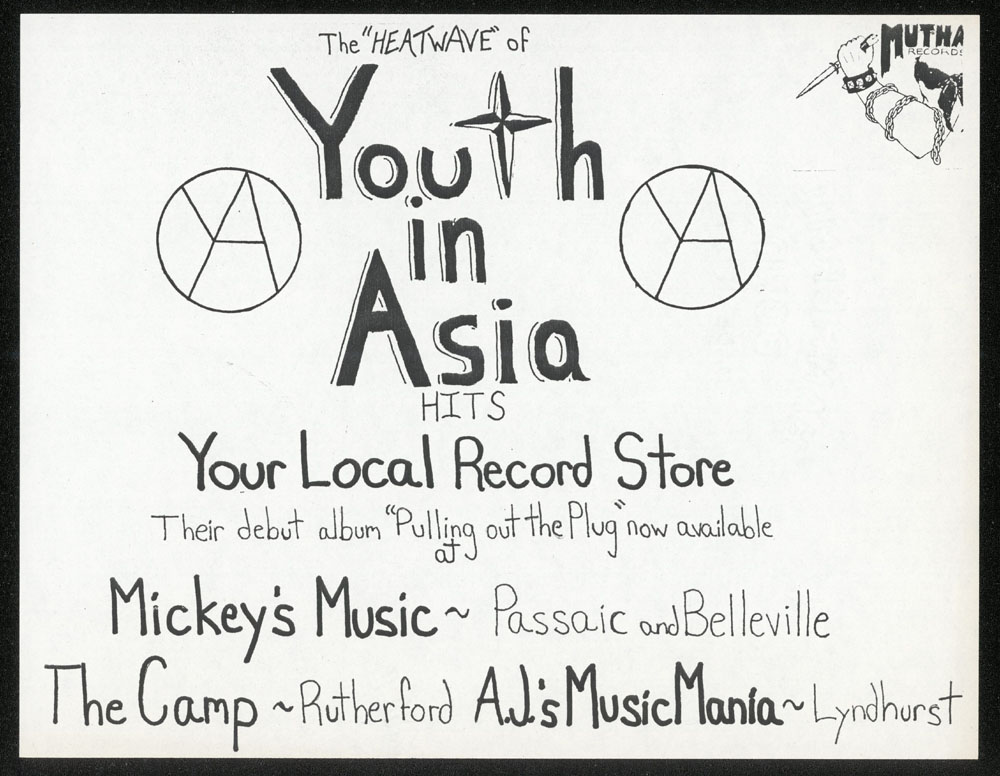 The "HEATWAVE" of
MUTHA
RECORDS
Youth
in
Asia
YA
YA
HITS
Your Local Record Store
Their debut album "Pulling out the Plug" now available
at
Mickey's Music ~ Passaic and Belleville
The Camp ~ Rutherford A.J.'s Music Mania ~ Lyndhurst